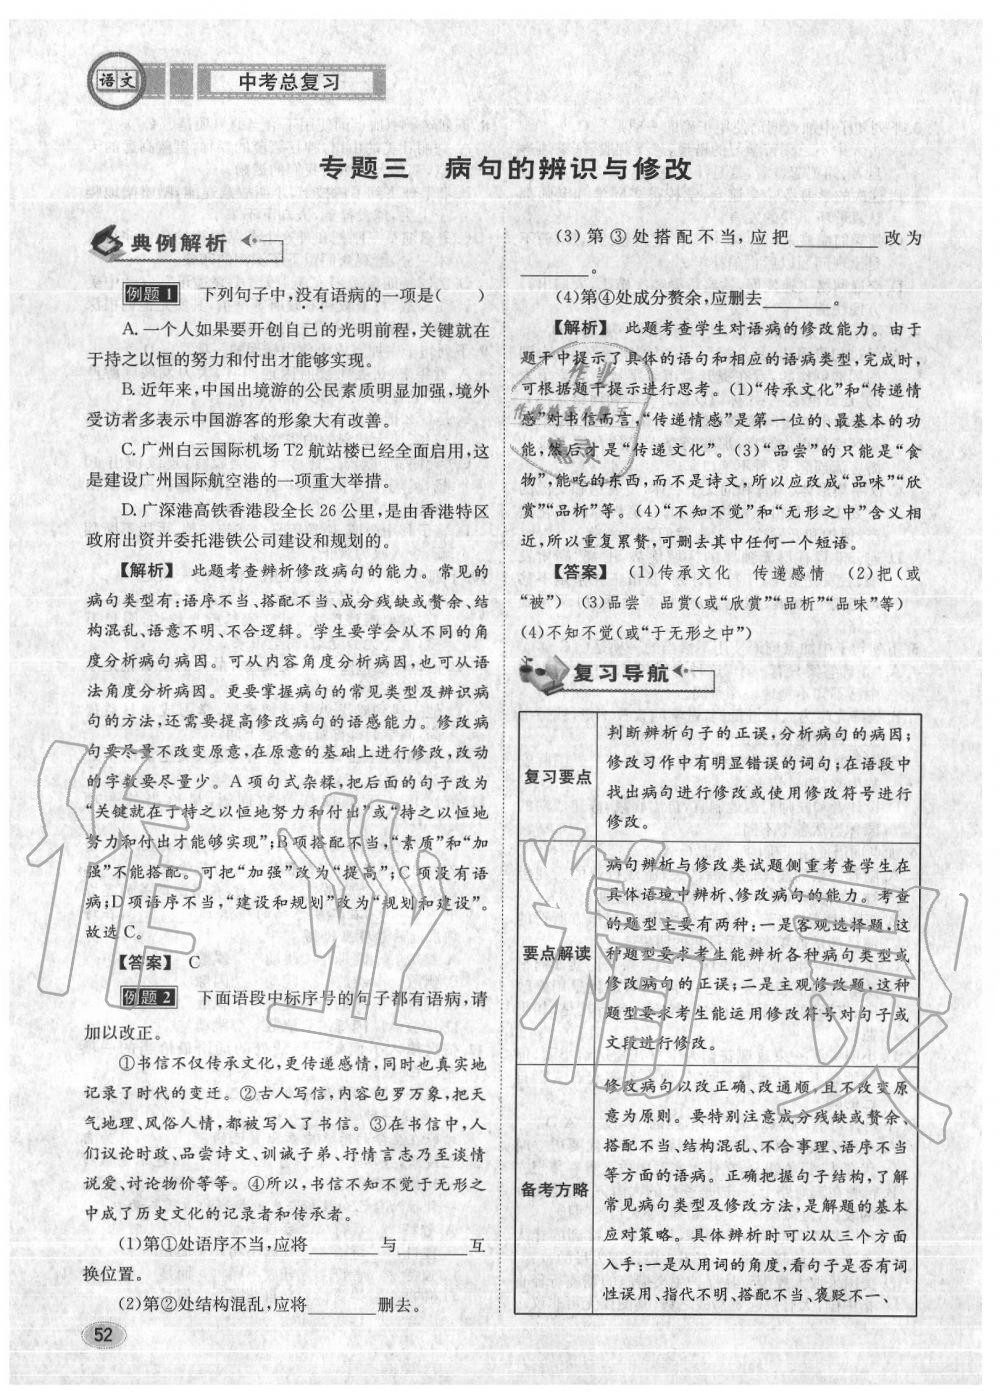 语文
中考总复习
专题三 病句的辨识与修改
典例解析
例题1 下列句子中,没有语病的一项是( )
A.一个人如果要开创自己的光明前程,关键就在
于持之以恒的努力和付出才能够实现。
B.近年来,中国出境游的公民素质明显加强,境外
受访者多表示中国游客的形象大有改善。
C.广州白云国际机场T2航站楼已经全面启用,这
是建设广州国际航空港的一项重大举措。
D.广深港高铁香港段全长26公里,是由香港特区
政府出资并委托港铁公司建设和规划的。
【解析】 此题考查辨析修改病句的能力。常见的
病句类型有:语序不当、搭配不当、成分残缺或赘余、结
构混乱、语意不明、不合逻辑。学生要学会从不同的角
度分析病句病因。可从内容角度分析病因,也可从语
法角度分析病因。更要掌握病句的常见类型及辨识病
句的方法,还需要提高修改病句的语感能力。修改病
句要尽量不改变原意,在原意的基础上进行修改,改动
的字数要尽量少。A项句式杂糅,把后面的句子改为
“关键就在于持之以恒地努力和付出”或“持之以恒地
努力和付出才能够实现”;B项搭配不当,“素质”和“加
强”不能搭配。可把“加强”改为“提高”;C项没有语
病;D项语序不当,“建设和规划”改为“规划和建设”。
故选C。
【答案】 C
例题2 下面语段中标序号的句子都有语病,请
加以改正。
①书信不仅传承文化,更传递感情,同时也真实地
记录了时代的变迁。②古人写信,内容包罗万象,把天
气地理、风俗人情,都被写入了书信。③在书信中,人
们议论时政、品尝诗文、训诫子弟、抒情言志乃至谈情
说爱、讨论物价等等。④所以,书信不知不觉于无形之
中成了历史文化的记录者和传承者。
(1)第①处语序不当,应将________与________互
换位置。
(2)第②处结构混乱,应将________删去。
(3)第③处搭配不当,应把________改为
________。
(4)第④处成分赘余,应删去________。
【解析】 此题考查学生对语病的修改能力。由于
题干中提示了具体的语句和相应的语病类型,完成时,
可根据题干提示进行思考。(1)“传承文化”和“传递情
感”对书信而言,“传递情感”是第一位的、最基本的功
能,然后才是“传递文化”。(3)“品尝”的只能是“食
物”,能吃的东西,而不是诗文,所以应改成“品味”“欣
赏”“品析”等。(4)“不知不觉”和“无形之中”含义相
近,所以重复累赘,可删去其中任何一个短语。
【答案】 (1)传承文化 传递感情 (2)把(或
“被”) (3)品尝 品赏(或“欣赏”“品析”“品味”等)
(4)不知不觉(或“于无形之中”)
复习导航
复习要点
判断辨析句子的正误,分析病句的病因;
修改习作中有明显错误的词句;在语段中
找出病句进行修改或使用修改符号进行
修改。
要点解读
病句辨析与修改类试题侧重考查学生在
具体语境中辨析、修改病句的能力。考查
的题型主要有两种:一是客观选择题,这
种题型要求考生能辨析各种病句类型或
修改病句的正误;二是主观修改题,这种
题型要求考生能运用修改符号对句子或
文段进行修改。
备考方略
修改病句以改正确、改通顺,且不改变原
意为原则。要特别注意成分残缺或赘余、
搭配不当、结构混乱、不合事理、语序不当
等方面的语病。正确把握句子结构,了解
常见病句类型及修改方法,是解题的基本
应对策略。具体辨析时可以从三个方面
入手:一是从用词的角度,看句子是否有词
性误用、指代不明、搭配不当、褒贬不一、
52
作业精灵